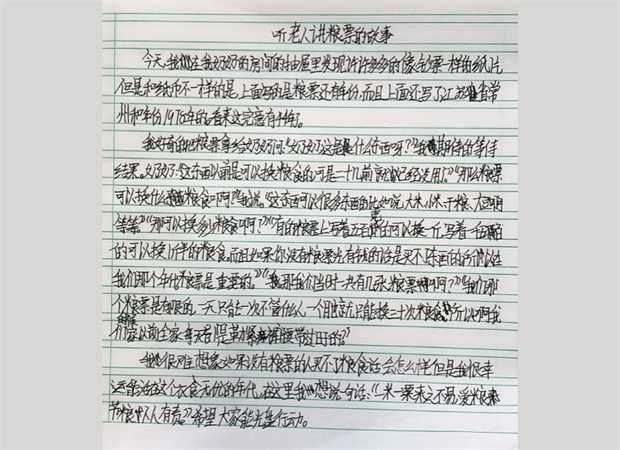 听老人讲粮票的故事
今天,我在我奶奶的房间的抽屉里发现许许多多的像钞票一样的纸片
但是和纸币不一样的是,上面写的是粮票还有年份,而且上面还写了江苏省常
州和年份1976年的,看来这完意有十年了。
我好奇的把粮票拿给奶奶问:“奶奶这是什么东西呀?”我期待的等待
结果。奶奶:“这东西以前是可以换粮食的可是二十几前就已经没用了。”“那么粮票
可以换什么粮食啊?”我说。“这东西可以很多东西的比如说,大米、小米、干粮、大豆
等等”“那可以换多少粮食啊?”“有的粮票上写着五百的可以换一斤,写着一百
的可以换1斤半的粮食,而且如果你没有粮票光有钱的话是买不了东西的所以在
我们那个年代粮票是重要的。”“那我们当时一共有几张粮票啊?”“我们那
个粮票是有限的,一天只能一次不管什么人一个月就只能换三十次粮食,所以啊我
们家以前全家每天都是勒紧裤腰带过日的。”
我很难想象如果没有粮票的买不了粮食话会怎么样但是我很幸
运生活在这个衣食无忧的年代,在这里我想说句话:“一米一粟来之不易,爱粮
节粮人人有责。”希望大家能先进行动。